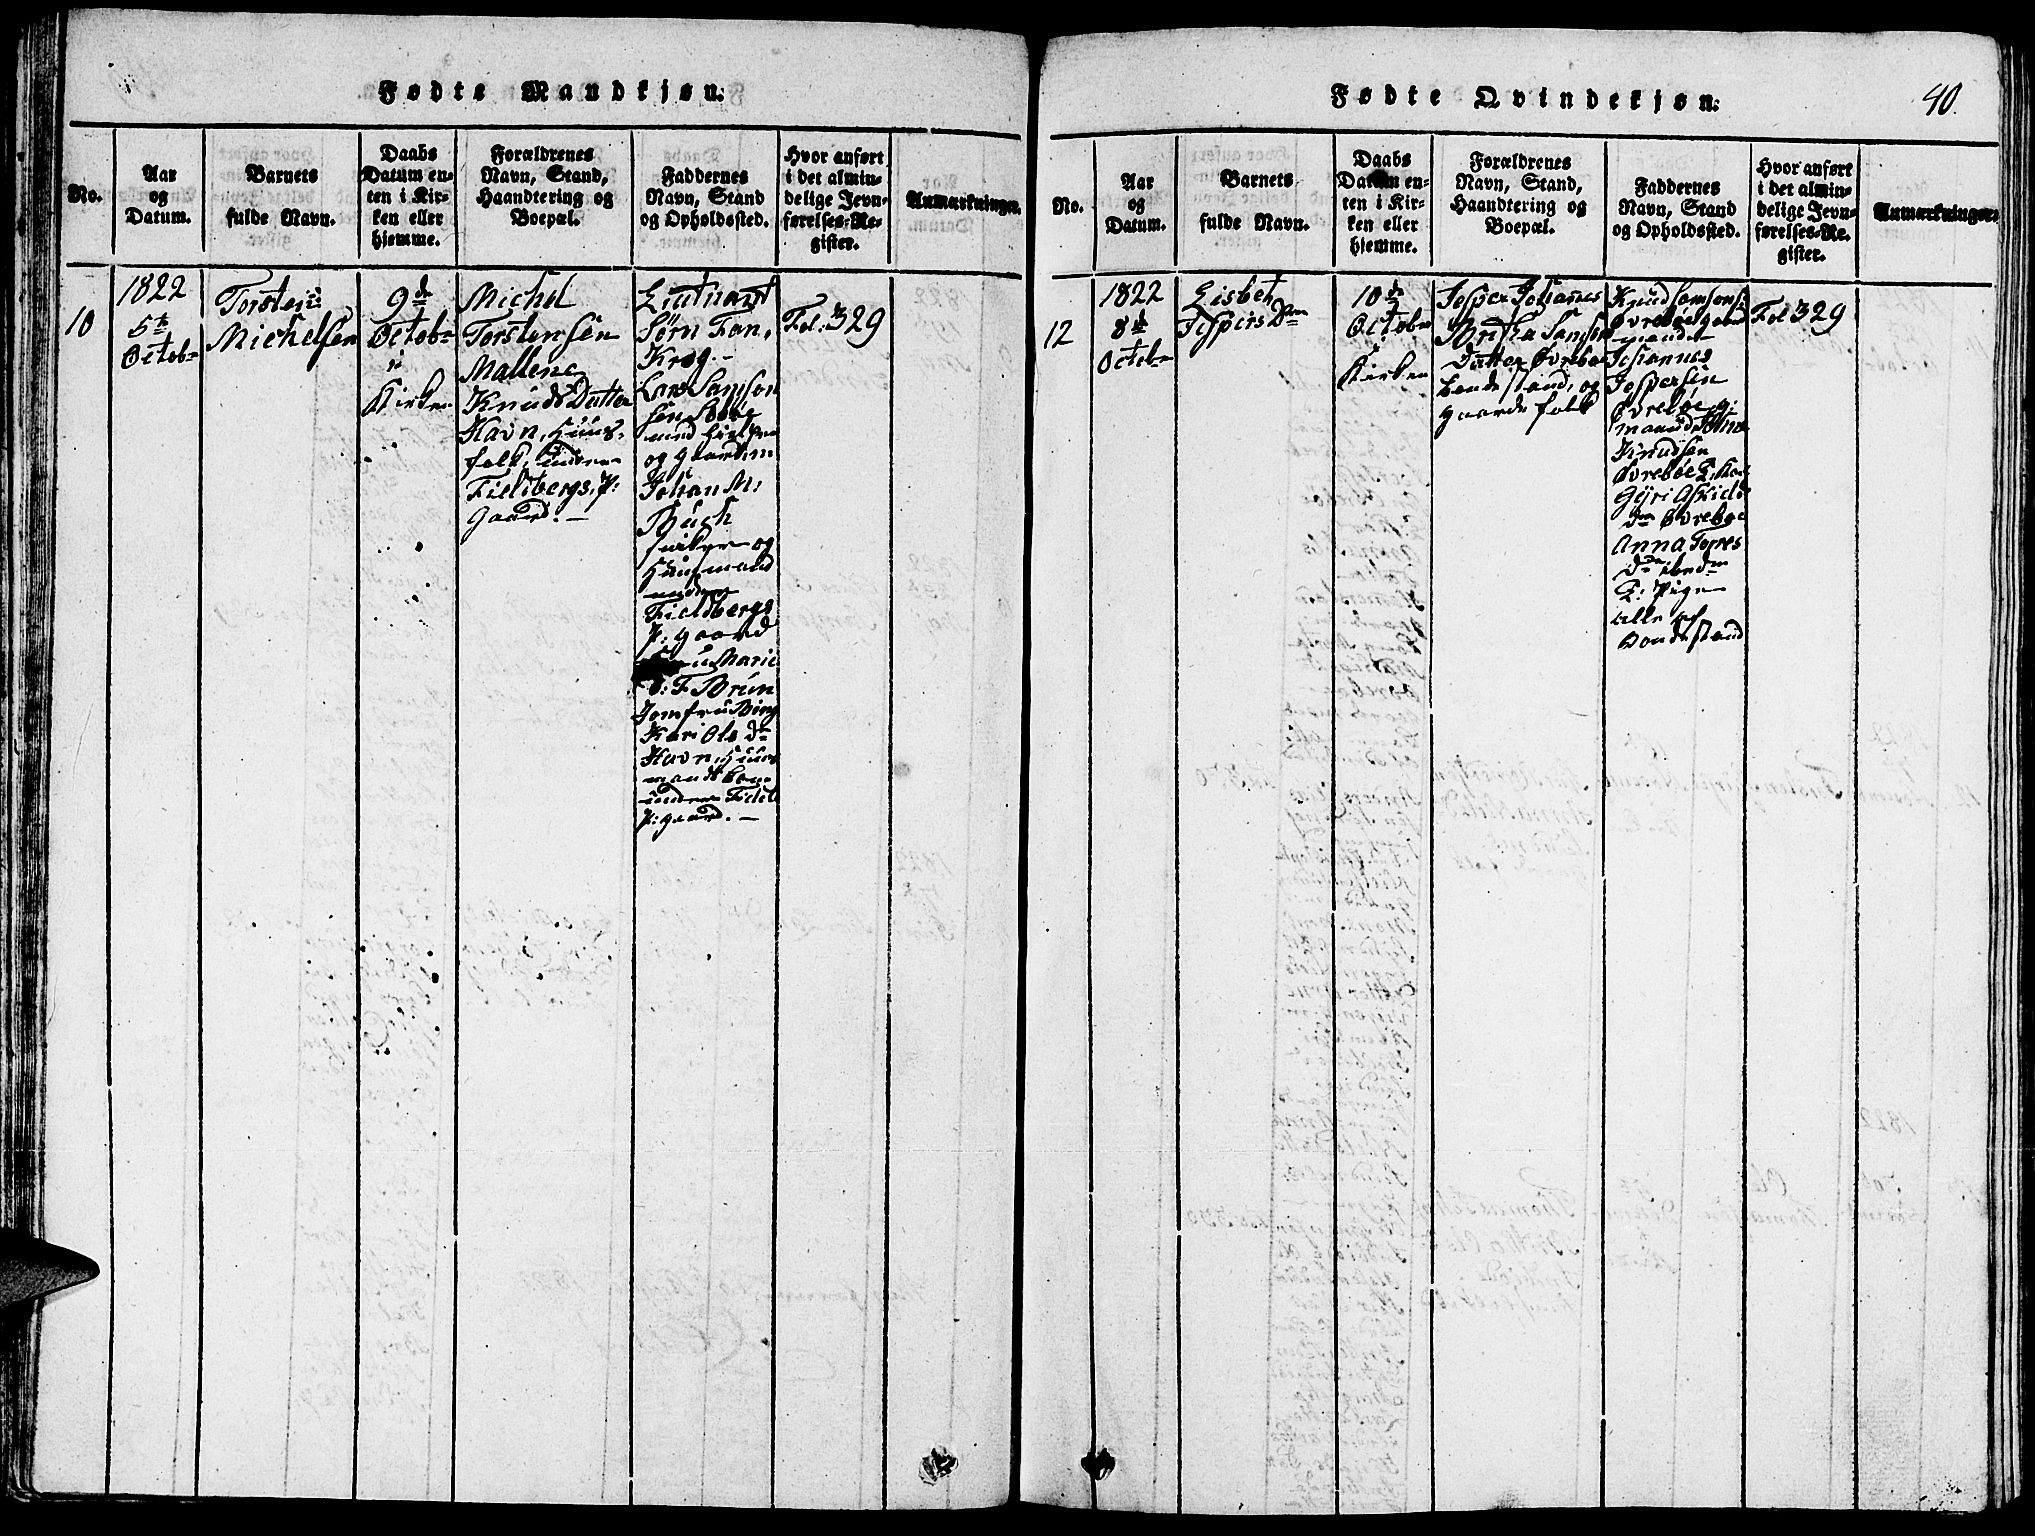 Fødte Mandkjøn.
No.
Aar
og
Datum.
Barnets
fulde Navn.
Daabs
Datum en-
ten i Kir-
ken eller
hjemme.
Forældrenes
Navn, Stand,
Haandtering og
Boepæl.
Faddernes
Navn, Stand
og Opholdssted.
Hvor anført
i det almin-
delige Jevn-
førelses-Re-
gister.
Anmærkninger.
10
1822
5te
Octobr
Torsten
Michelsen
9de
Octobr
i
Kirken
Michel
Torstensen
Mallene
Knuds Datter
Havn, Huus-
folk, under
Fieldbergs P:
gaard. –
Lieutnant
Sørn Fan.
Krog. –
Lars Samson
sen
og
Johan M:
Buch
og
Huusmand
under
Fieldbergs
P: gaard
Marie
F. Brun
Jomfru Bing
Kari Ols Dr
Havn, Huus
mands
under Field
P: gaard. –
Fol: 329
Fødte Qvindekjøn.
40.
No.
Aar
og
Datum.
Barnets
fulde Navn.
Daabs
Datum en-
ten i Kir-
ken eller
hjemme.
Forældrenes
Navn, Stand,
Haandtering og
Boepæl.
Faddernes
Navn, Stand
og Opholdssted.
Hvor anført
i det almin-
delige Jevn-
førelses-Re-
gister.
Anmærkninger.
12
1822
8de
Octobr
Lisbet
Jespers Dr
10de
Octobr
i
Kirken
Jesper Johannes
Britha Samson
Datter Øvreboe
bondestand, og
gaardsfolk
Knud Samsons:
Øvreboe gaard
mand
Johannes
Jespersen
Øvreboe g:
mand
Knudsen
Øvreboe
Gyri Askilds
Dr Øvreboe
Anna Torres
Dr ibdm
T: Pige
alle af
Bondestand
Fol 329